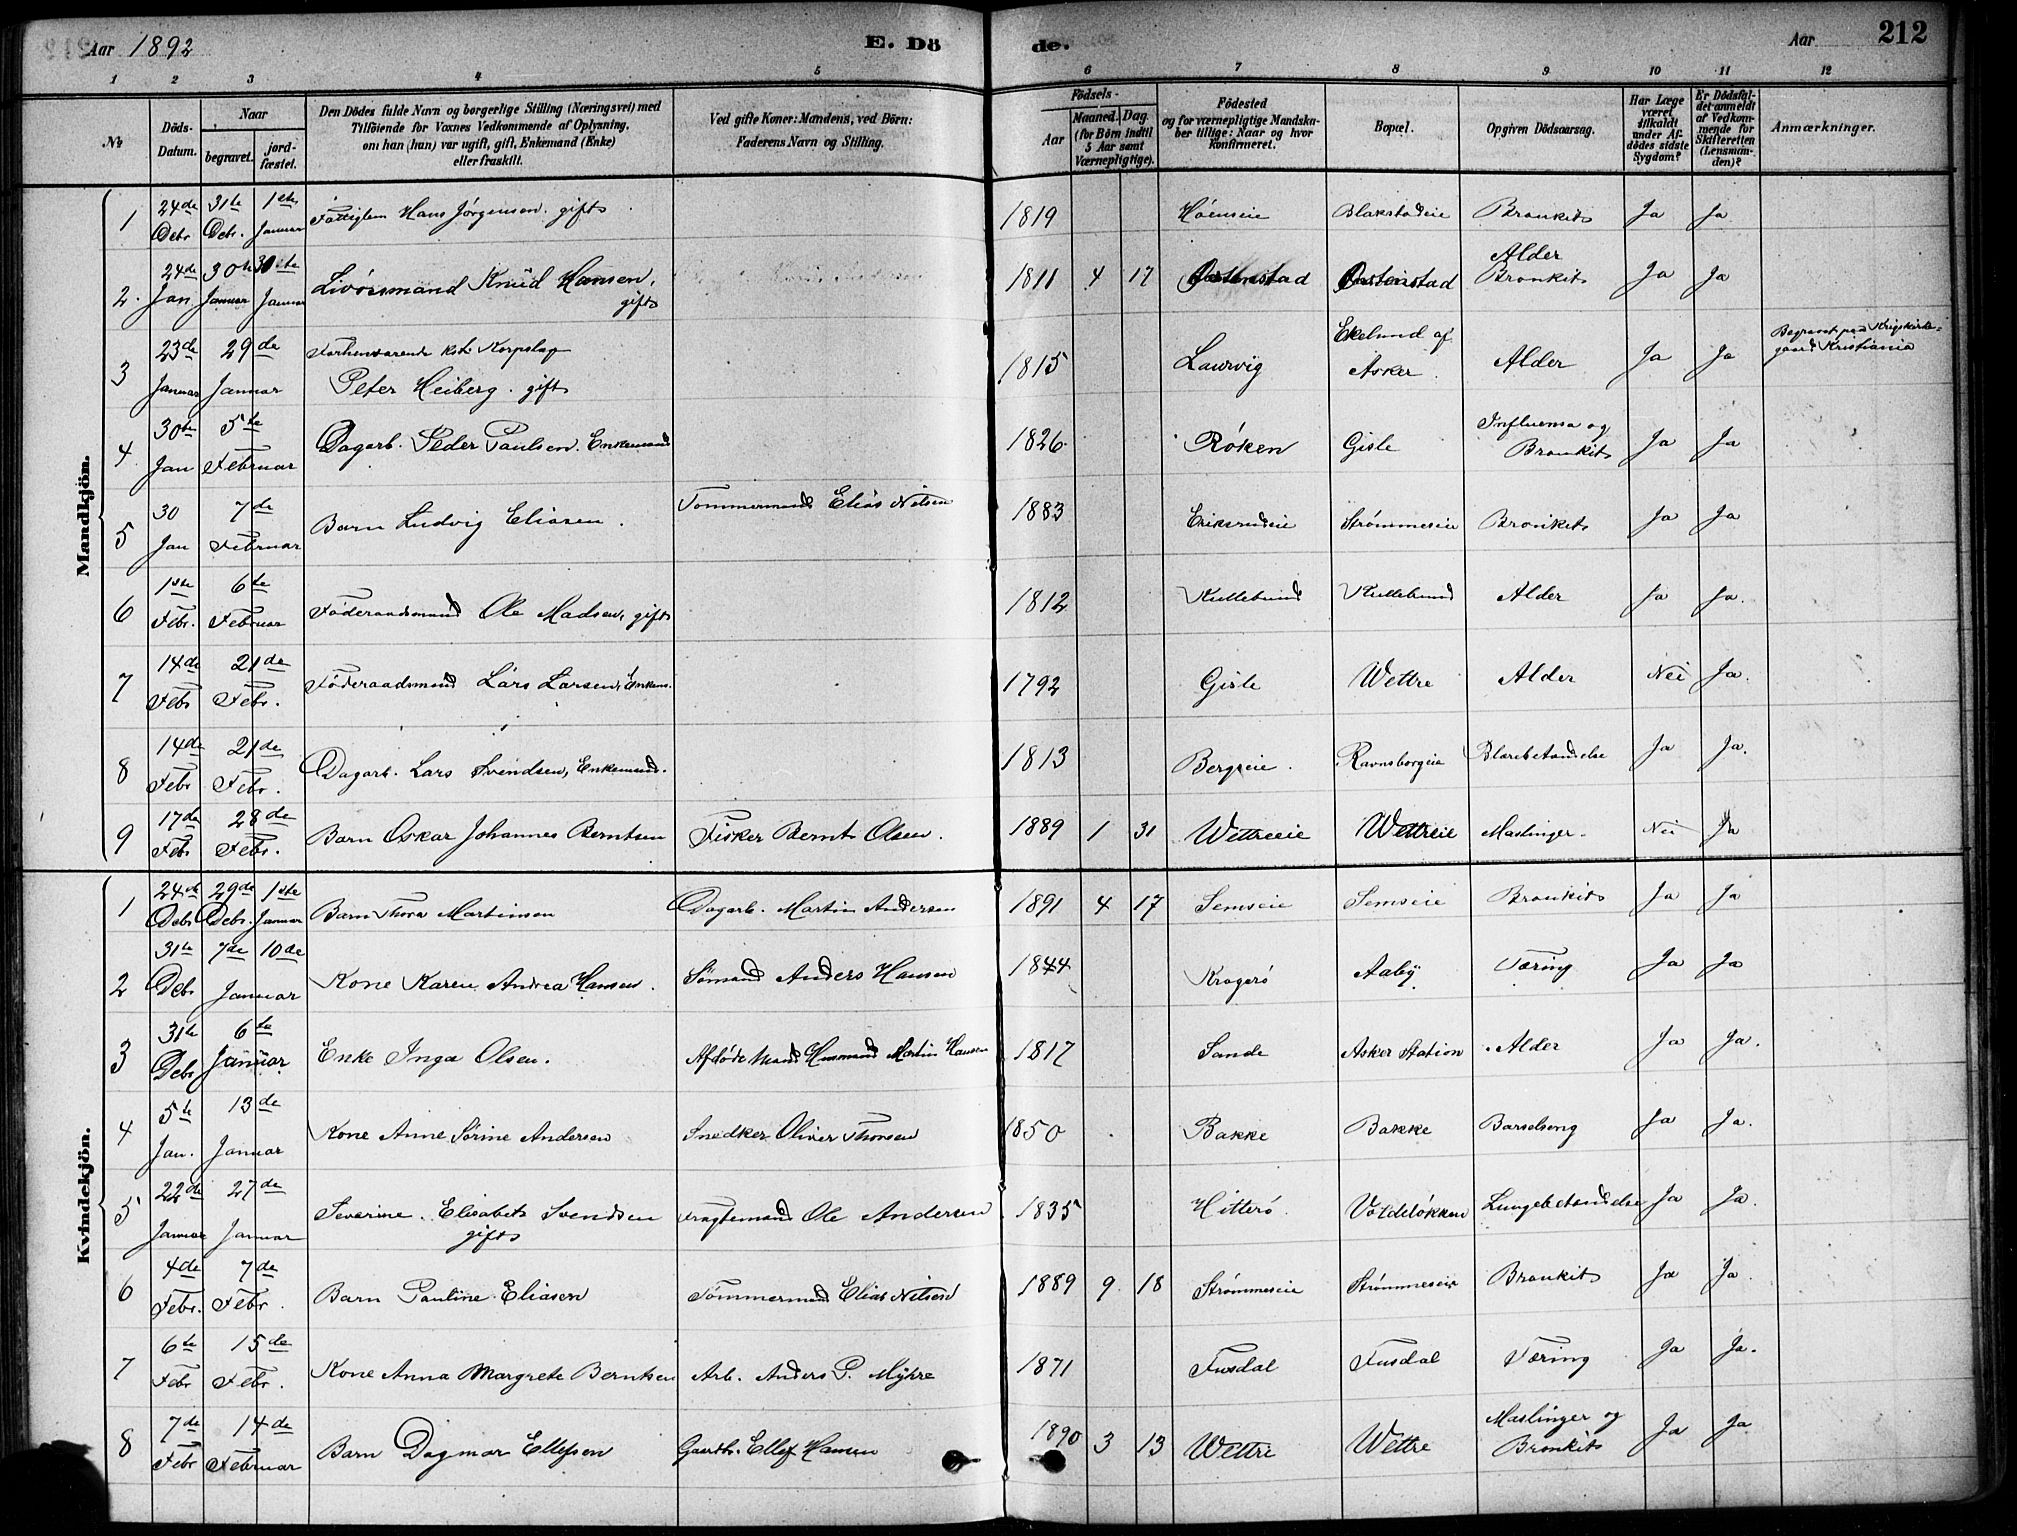 Aar 1892 E. Dö de. Aar 212
1 2 3 4 5 6 7 8 9 10 11 12
№
Döds-Datum.
Naar
begravet.
jord-fæstet.
Den Dödes fulde Navn og borgerlige Stilling (Næringsvei) med
Tilföiende for Voxnes Vedkommende af Oplysning,
om han (hun) var ugift, gift, Enkemand (Enke)
eller fraskilt.
Ved gifte Koner: Mandens, ved Börn:
Faderens Navn og Stilling.
Födsels-
Aar
Maaned. Dag
(for Börn indtil
5 Aar samt
Værnepligtige).
Födested
og for værnepligtige Mandska-
ber tillige: Naar og hvor
konfirmeret.
Bopæl.
Opgiven Dödsaarsag.
Har Læge
været
tilkaldt
under Af-
dödes sidste
Sygdom?
Er Dödsfal-
det anmeldt
af Vedkom-
mende for
Skifteretten
(Lensman-
den)?
Anmærkninger.
Mandkjön.
1 24de Debr 31te Debr. 1ste Januar Fattiglem Hans Jörgensen. gift 1819 Höenseie Blakstadeie Bronkit Ja Ja
2. 24de Jan. 30te Januar 30te Januar Knud Hansen, gift 1811 4 17 Oustenstad Oustenstad Alder Bronkit Ja Ja
3 23de Januar 29de Januar Forhenværende Peter Heiberg. gift 1815 Laurvig Ekelund af Asker. Alder Ja Ja Begravet paa Krigskirke-gaard Kristiania
4 30te Jan 5te Februar Dagarb. Peder Paulsen. Enkemand 1826 Röken Gisle Influensa og Bronkit Ja Ja
5 30 Jan 7de Februar Barn Ludvig Eliasen. Tømmermand Elias Nilsen 1883 Eriksrudeie Strømmeseie Bronkit Ja Ja
6 1ste Febr. 6te Februar Föderaadsmand Ole Madsen, gift 1812 Kullebund Kullebund Alder Ja Ja.
7 14de Febr 21de Febr. Föderaadsmand Lars Larsen, Enkem. 1792 Gisle Wettre Alder Nei Ja.
8 14de Febr 21de Febr. Dagarb. Lars Svendsen, Enkemand. 1813 Bergseie. Ravnsborgeie Blærebetændelse Ja Ja.
9 17de Febr 28de Febr. Barn Oskar Johannes Berntsen Fisker Bernt Olsen. 1889 1 31 Wettreeie Wettreeie Mæslinger. Nei Ja
Kvindekjön.
1 24de Debr 29de Debr. 1ste Januar Barn Thora Martinsen Dagarb. Martin Andersen 1891 4 17 Semseie Semseie Bronkit Ja Ja
2 31te Debr 7de Januar 10de Kone Karen Andrea Hansen. Sömand Anders Hansen 1844 Kragerö Aaby Tæring Ja Ja
3 31te Debr 6te Januar Enke Inga Olsen. Afdöde Mand Husmand Martin Hansen 1817 Sande Asker Station Alder Ja Ja.
4 5te Jan. 13de Januar Kone Anne Sörine Andersen Snedker Oliver Thorsen 1850 Bakke Bakke Barselseng Ja Ja.
5 22de Januar 27de Januar Severine Elisabet Svendsen gift Fragtemand Ole Andersen 1835 Hitterö. Voldelökken Lungebetændelse Ja Ja.
6 4de Febr. 7de Febr. Barn Pauline Eliasen Tømmermand Elias Nilsen 1889 9 18 Strømmeseie Strømmeseie Bronkit Ja Ja.
7 6te Febr 15de Febr. Kone Anna Margrete Berntsen Arb. Anders P. Myhre 1871 Fusdal Fusdal Tæring Ja Ja.
8 7de Febr 14de Februar Barn Dagmar Ellefsen Gaardbr. Ellef Hansen 1890 3 13 Wettre Wettre Mæslinger og Bronkit Ja Ja